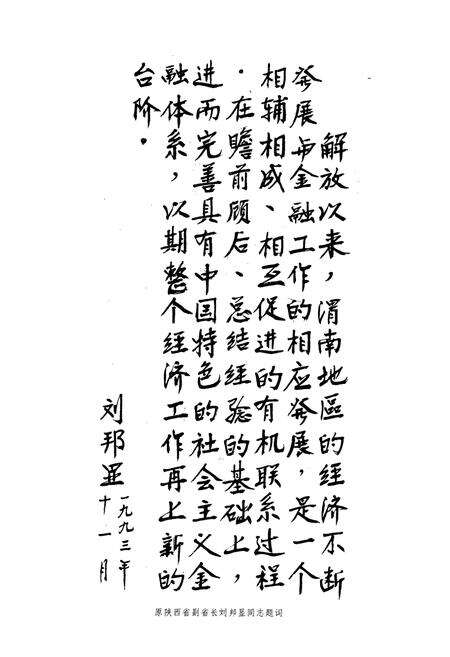 解放以来，渭南地區的经济不断
發展与金融工作的相应發展，是一个
相辅相成、相互促进的有机联系过程
。在瞻前顾后、总结经验的基础上，
进而完善具有中国特色的社会主义金
融体系，以期整个经济工作再上新的
台阶。
刘邦显
一九九三年
十一月
原陕西省副省长刘邦显同志题词